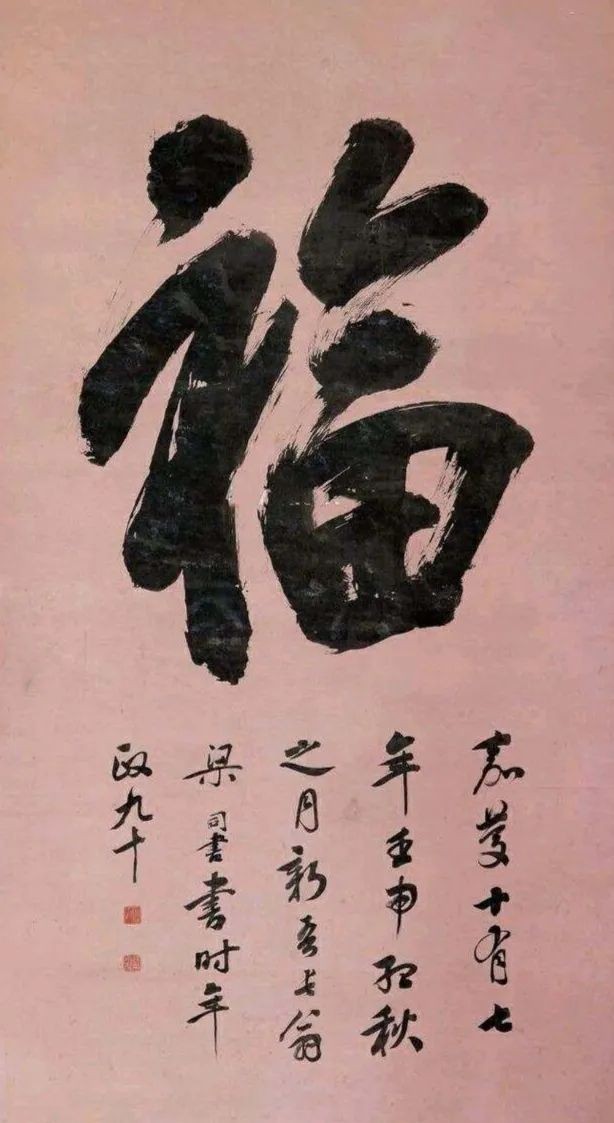 福
嘉慶十有七
年壬申初秋
之月新吾长翁
梁同書書时年
政九十